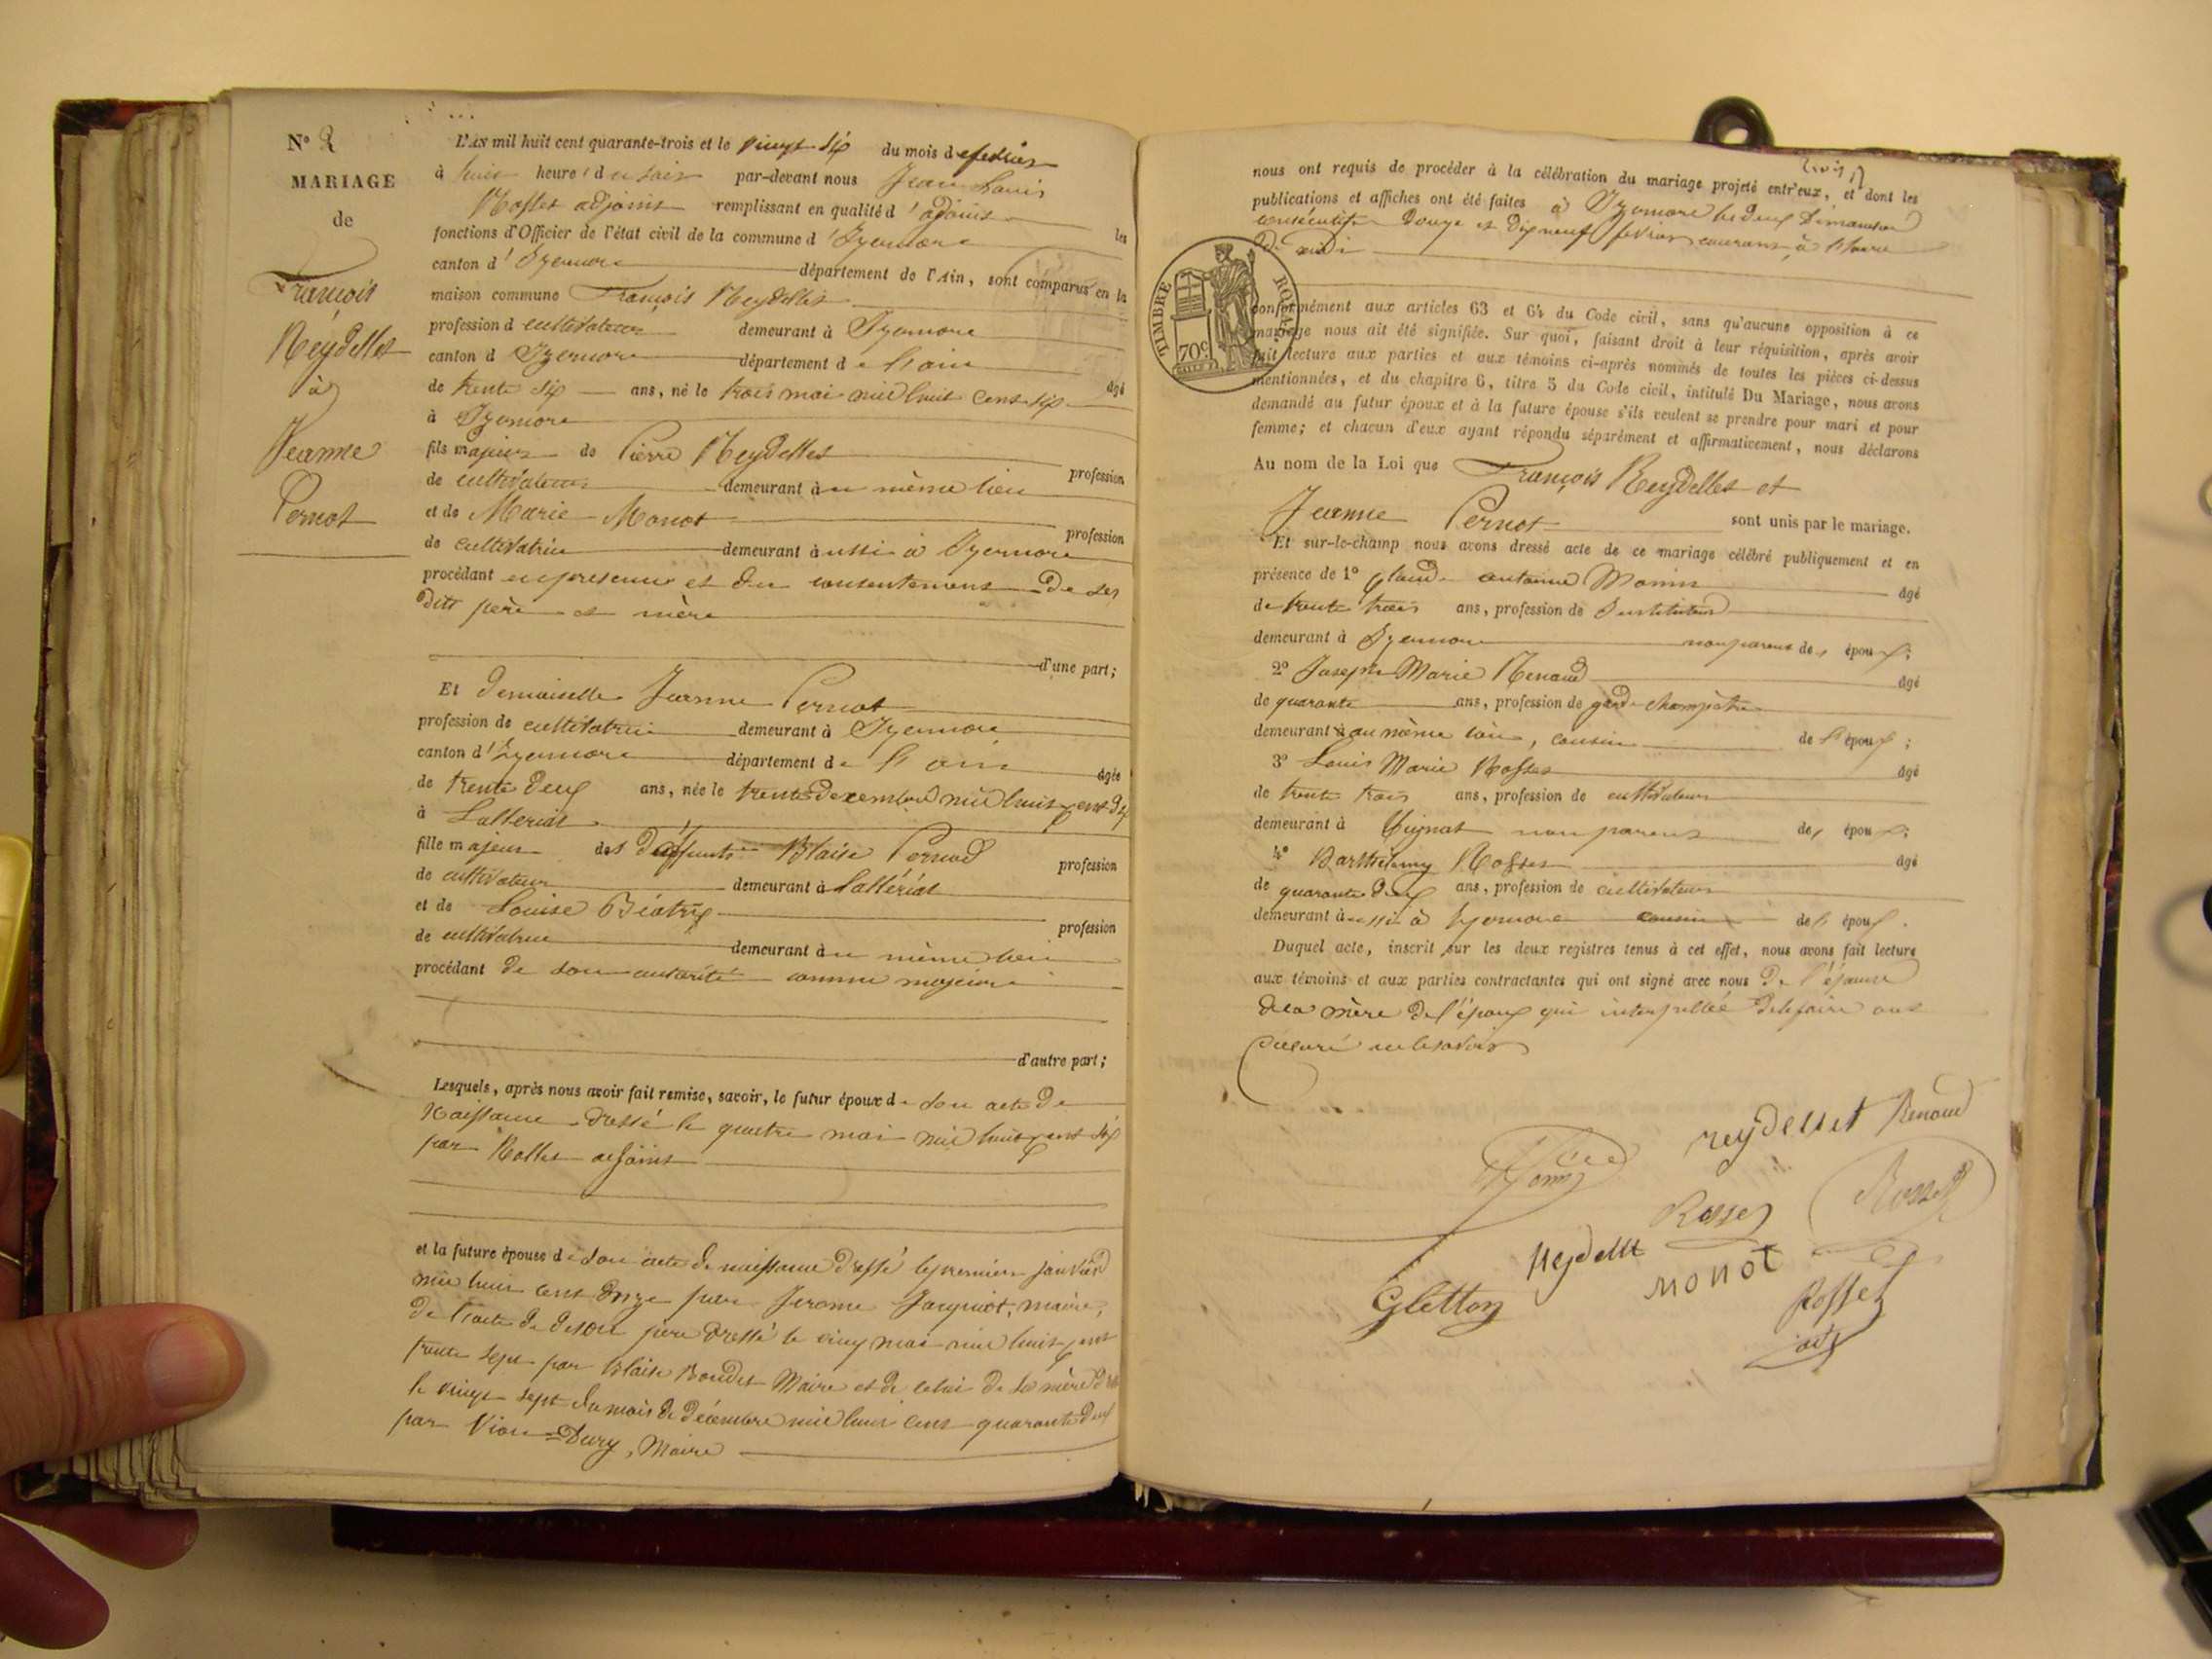 N° 3
MARIAGE
de
François
Reydellet
à
Jeanne
Pernot
L'AN mil huit cent quarante-trois et le vingt six du mois de février
à huit heures du soir par-devant nous Jean Louis
Rosset adjoint remplissant en qualité d'adjoint les
fonctions d'Officier de l'état civil de la commune d'Izernore
canton d'Izernore département de l'Ain, sont comparus en la
maison commune François Reydellet
profession de cultivateur demeurant à Izernore
canton d'Izernore département de l'ain âgé
de trente six ans, né le trois mai mil huit cent six
à Izernore
fils majeur de Pierre Reydellet profession
de cultivateur demeurant au même lieu
et de Marie Monot profession
de cultivatrice demeurant aussi à Izernore
procédant en présence et du consentement de ses
dits père et mère
d'une part;
Et demoiselle Jeanne Pernot
profession de cultivatrice demeurant à Izernore
canton d'Izernore département de l'ain âgée
de trente deux ans, née le trente decembre mil huit cent dix
à Lalleriat
fille majeure des défunts Blaise Pernod profession
de cultivateur demeurant à Lallériat
et de Louise Béatrix profession
de cultivatrice demeurant au même lieu
procédant de son autorité comme majeure
d'autre part;
Lesquels, après nous avoir fait remise, savoir, le futur époux de son acte de
naissance dressé le quatre mai mil huit cent six
par Rosset adjoint
et la future épouse de son acte de naissance dressé le premier janvier
mil huit cent onze par Jerome Jacquiot, maire,
de l'acte de de son père dressé le cinq mai mil huit cent
trente sept par Blaise Boudet Maire et de celui de sa mère
le vingt sept du mois de décembre mil huit cent quarante deux
par Vion-Dury, Maire
nous ont requis de procéder à la célébration du mariage projeté entr'eux, et dont les
publications et affiches ont été faites à Izernore les deux dimanches
consécutifs douze et dix neuf février courant, à l'heure
de midi
TIMBRE ROYAL
70c
conformément aux articles 63 et 64 du Code civil, sans qu'aucune opposition à ce
mariage nous ait été signifiée. Sur quoi, faisant droit à leur réquisition, après avoir
fait lecture aux parties et aux témoins ci-après nommés de toutes les pièces ci-dessus
mentionnées, et du chapitre 6, titre 5 du Code civil, intitulé Du Mariage, nous avons
demandé au futur époux et à la future épouse s'ils veulent se prendre pour mari et pour
femme; et chacun d'eux ayant répondu séparément et affirmativement, nous déclarons
Au nom de la Loi que François Reydellet et
Jeanne Pernot sont unis par le mariage.
Et sur-le-champ nous avons dressé acte de ce mariage célébré publiquement et en
présence de 1° Claude antoine Monin âgé
de trente trois ans, profession de Instituteur
demeurant à Izernore non parent des époux;
2° Joseph Marie Renaud âgé
de quarante ans, profession de garde champêtre
demeurant au même lieu, cousin de l'époux;
3° Louis Marie Rosset âgé
de trente trois ans, profession de cultivateur
demeurant à non parent des époux;
4° Barthélemy Rosset âgé
de quarante deux ans, profession de cultivateur
demeurant aussi à Izernore cousin de l'époux.
Duquel acte, inscrit sur les deux registres tenus à cet effet, nous avons fait lecture
aux témoins et aux parties contractantes qui ont signé avec nous de l'épouse
de la mère de l'époux qui interpellée de le faire ont
déclaré ne le savoir
reydellet Renaud
Monin
Rosset Rosset
Reydellet Monot
Gletton Rosset
adt